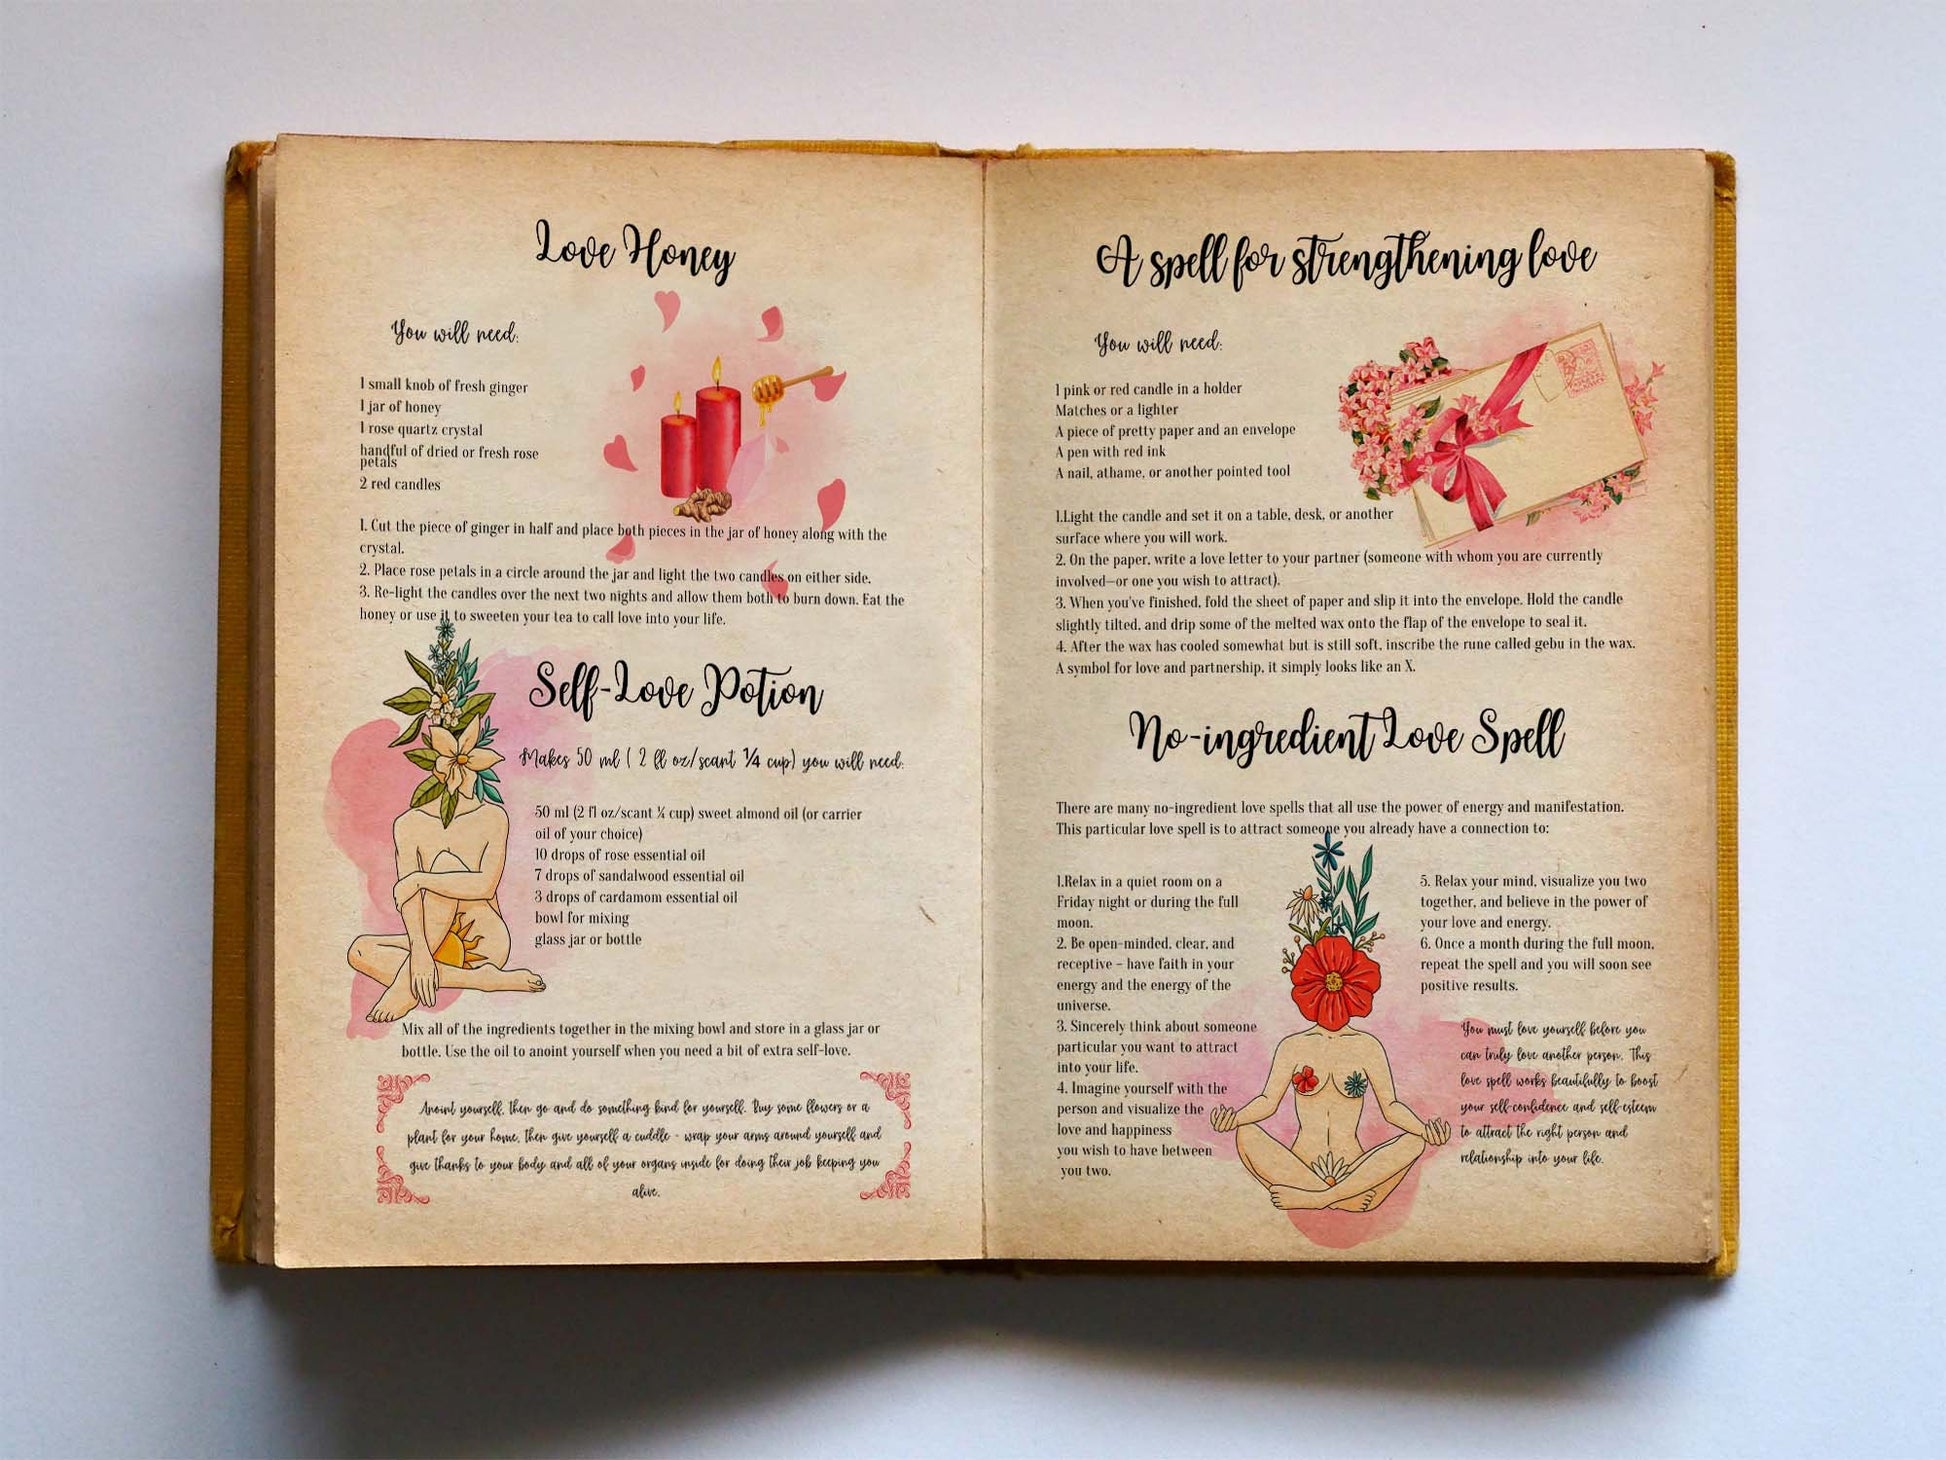 Love Honey
You will need:
1 small knob of fresh ginger
1 jar of honey
1 rose quartz crystal
handful of dried or fresh rose
petals
2 red candles
1. Cut the piece of ginger in half and place both pieces in the jar of honey along with the
crystal.
2. Place rose petals in a circle around the jar and light the two candles on either side.
3. Re-light the candles over the next two nights and allow them both to burn down. Eat the
honey or use it to sweeten your tea to call love into your life.
Self-Love Potion
Makes 50 ml ( 2 fl oz/scant ¼ cup) you will need:
50 ml (2 fl oz/scant ¼ cup) sweet almond oil (or carrier
oil of your choice)
10 drops of rose essential oil
7 drops of sandalwood essential oil
3 drops of cardamom essential oil
bowl for mixing
glass jar or bottle
Mix all of the ingredients together in the mixing bowl and store in a glass jar or
bottle. Use the oil to anoint yourself when you need a bit of extra self-love.
Anoint yourself, then go and do something kind for yourself. Buy some flowers or a
plant for your home, then give yourself a cuddle - wrap your arms around yourself and
give thanks to your body and all of your organs inside for doing their job keeping you
alive.
A spell for strengthening love
You will need:
1 pink or red candle in a holder
Matches or a lighter
A piece of pretty paper and an envelope
A pen with red ink
A nail, athame, or another pointed tool
1.Light the candle and set it on a table, desk, or another
surface where you will work.
2. On the paper, write a love letter to your partner (someone with whom you are currently
involved—or one you wish to attract).
3. When you've finished, fold the sheet of paper and slip it into the envelope. Hold the candle
slightly tilted, and drip some of the melted wax onto the flap of the envelope to seal it.
4. After the wax has cooled somewhat but is still soft, inscribe the rune called gebu in the wax.
A symbol for love and partnership, it simply looks like an X.
No-ingredient Love Spell
There are many no-ingredient love spells that all use the power of energy and manifestation.
This particular love spell is to attract someone you already have a connection to:
1.Relax in a quiet room on a
Friday night or during the full
moon.
2. Be open-minded, clear, and
receptive – have faith in your
energy and the energy of the
universe.
3. Sincerely think about someone
particular you want to attract
into your life.
4. Imagine yourself with the
person and visualize the
love and happiness
you wish to have between
you two.
5. Relax your mind, visualize you two
together, and believe in the power of
your love and energy.
6. Once a month during the full moon,
repeat the spell and you will soon see
positive results.
You must love yourself before you
can truly love another person. This
love spell works beautifully to boost
your self-confidence and self-esteem
to attract the right person and
relationship into your life.